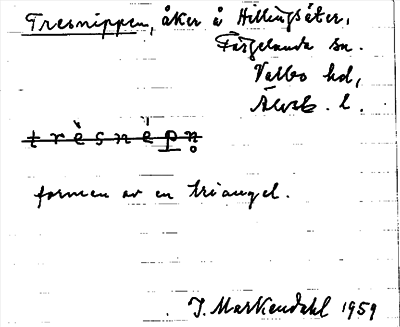 Tresnippen, åker å Hillingsäter,
Färgelanda sn.
Valbo hd,
Älvsb. l.
trèsnèpn̥
formen av en triangel.
J. Markendahl 1959